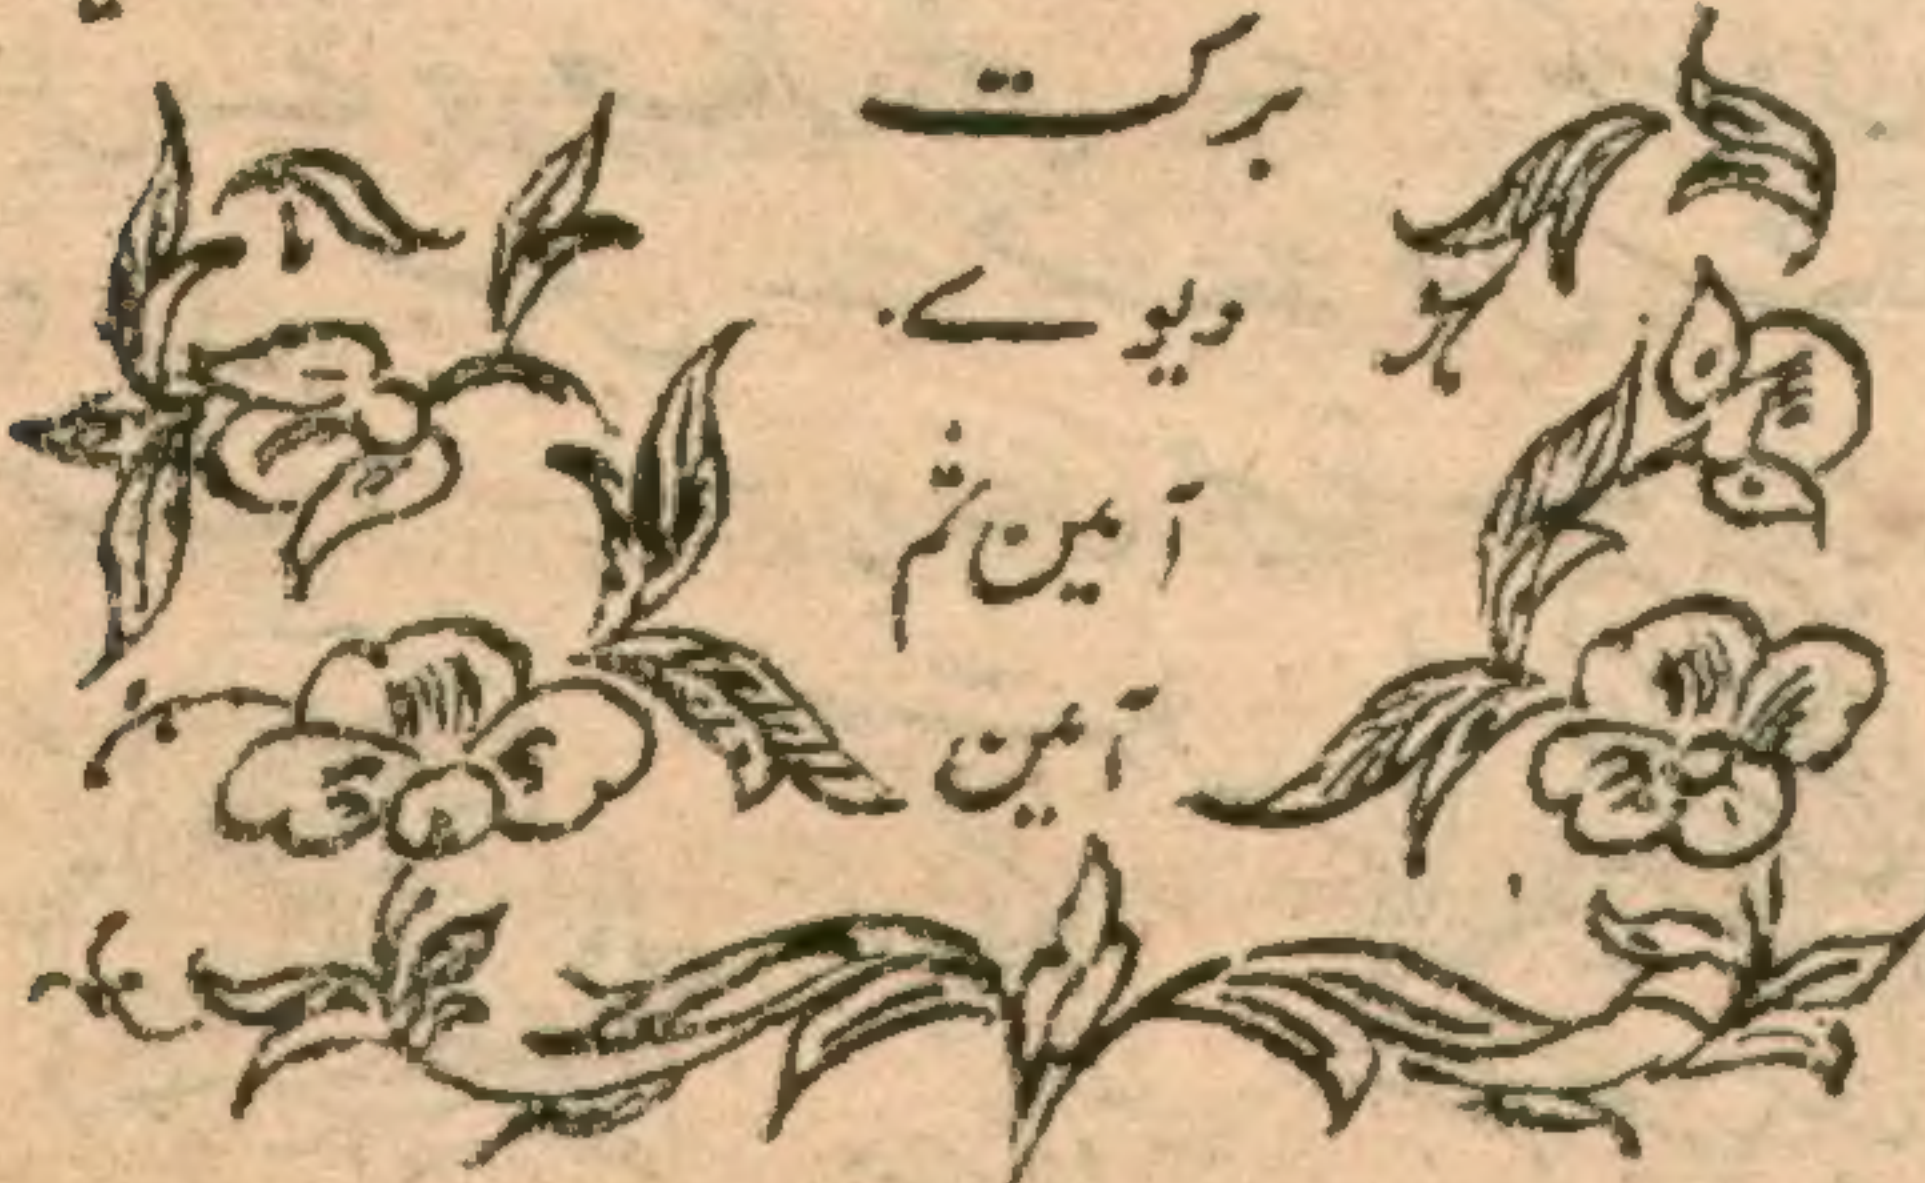 برکت
دیوے۔
آمین ثم
آمین